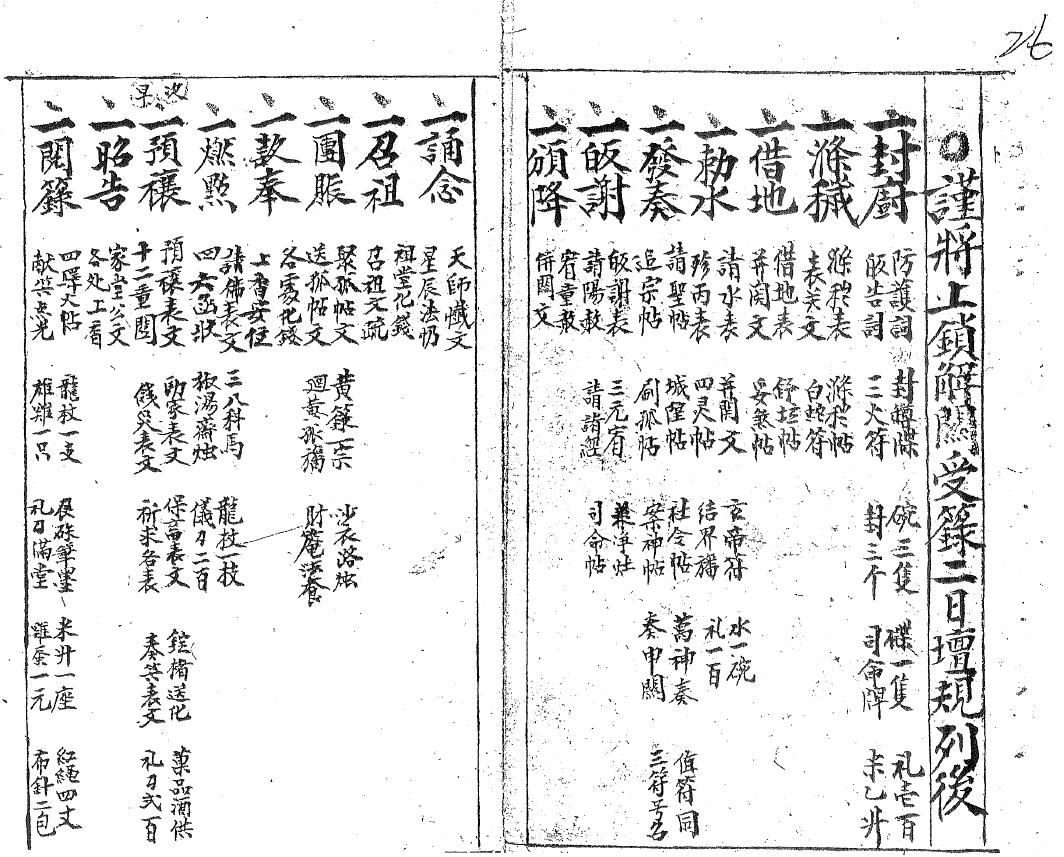 26
○謹將上鎖解關受籙二日壇規列後
一封廚 防護詞 封罇牒 碗三隻 碟一隻 礼壹百
皈告詞 三火符 封三个 司命牌 米乙升
一滌穢 滌穢表 滌穢帖
表关文 白蛇符
一借地 借地表 舒坛帖
并関文 妥煞帖
一勅水 請水表 并関文 玄帝符 水一碗
珍丙表 四灵帖 結界旛 礼一百
一發奏 請聖帖 城隍帖 社令帖 萬神奏 值符同
追宗帖 刷孤帖 案神帖 奏申關 三符
一皈謝 皈謝表 三元宥
請陽赦 請諸經 司命帖
一頒降 宥童赦
併関文
一誦念 天師懺文
星辰法忏
一召祖 祖堂化錢
召祖文疏
一團賑 聚孤帖文 黄籙一宗 沙衣浴烛
送孤帖文 迴黄孤旛 財篭法食
一款奉 各處化錢
上香安位
一燃點 請佛表文 三八科馬 龍杖一枝
四六函状 椒湯齋烛 儀刀二百
早 次
一預禳 預禳表文 励家表文 保畜表文 錠俻送化 菓品酒供
十二童関 餞災表文 祈求各表 奏災表文 礼刀弍百
一昭告 家堂公文
各处上香
一開籙 四驛火帖 龍杖一支 良硃筆墨 米升一座 紅繩四丈
献災灵光 雄雞一只 礼刀滿堂 雞蛋一元 布針二包